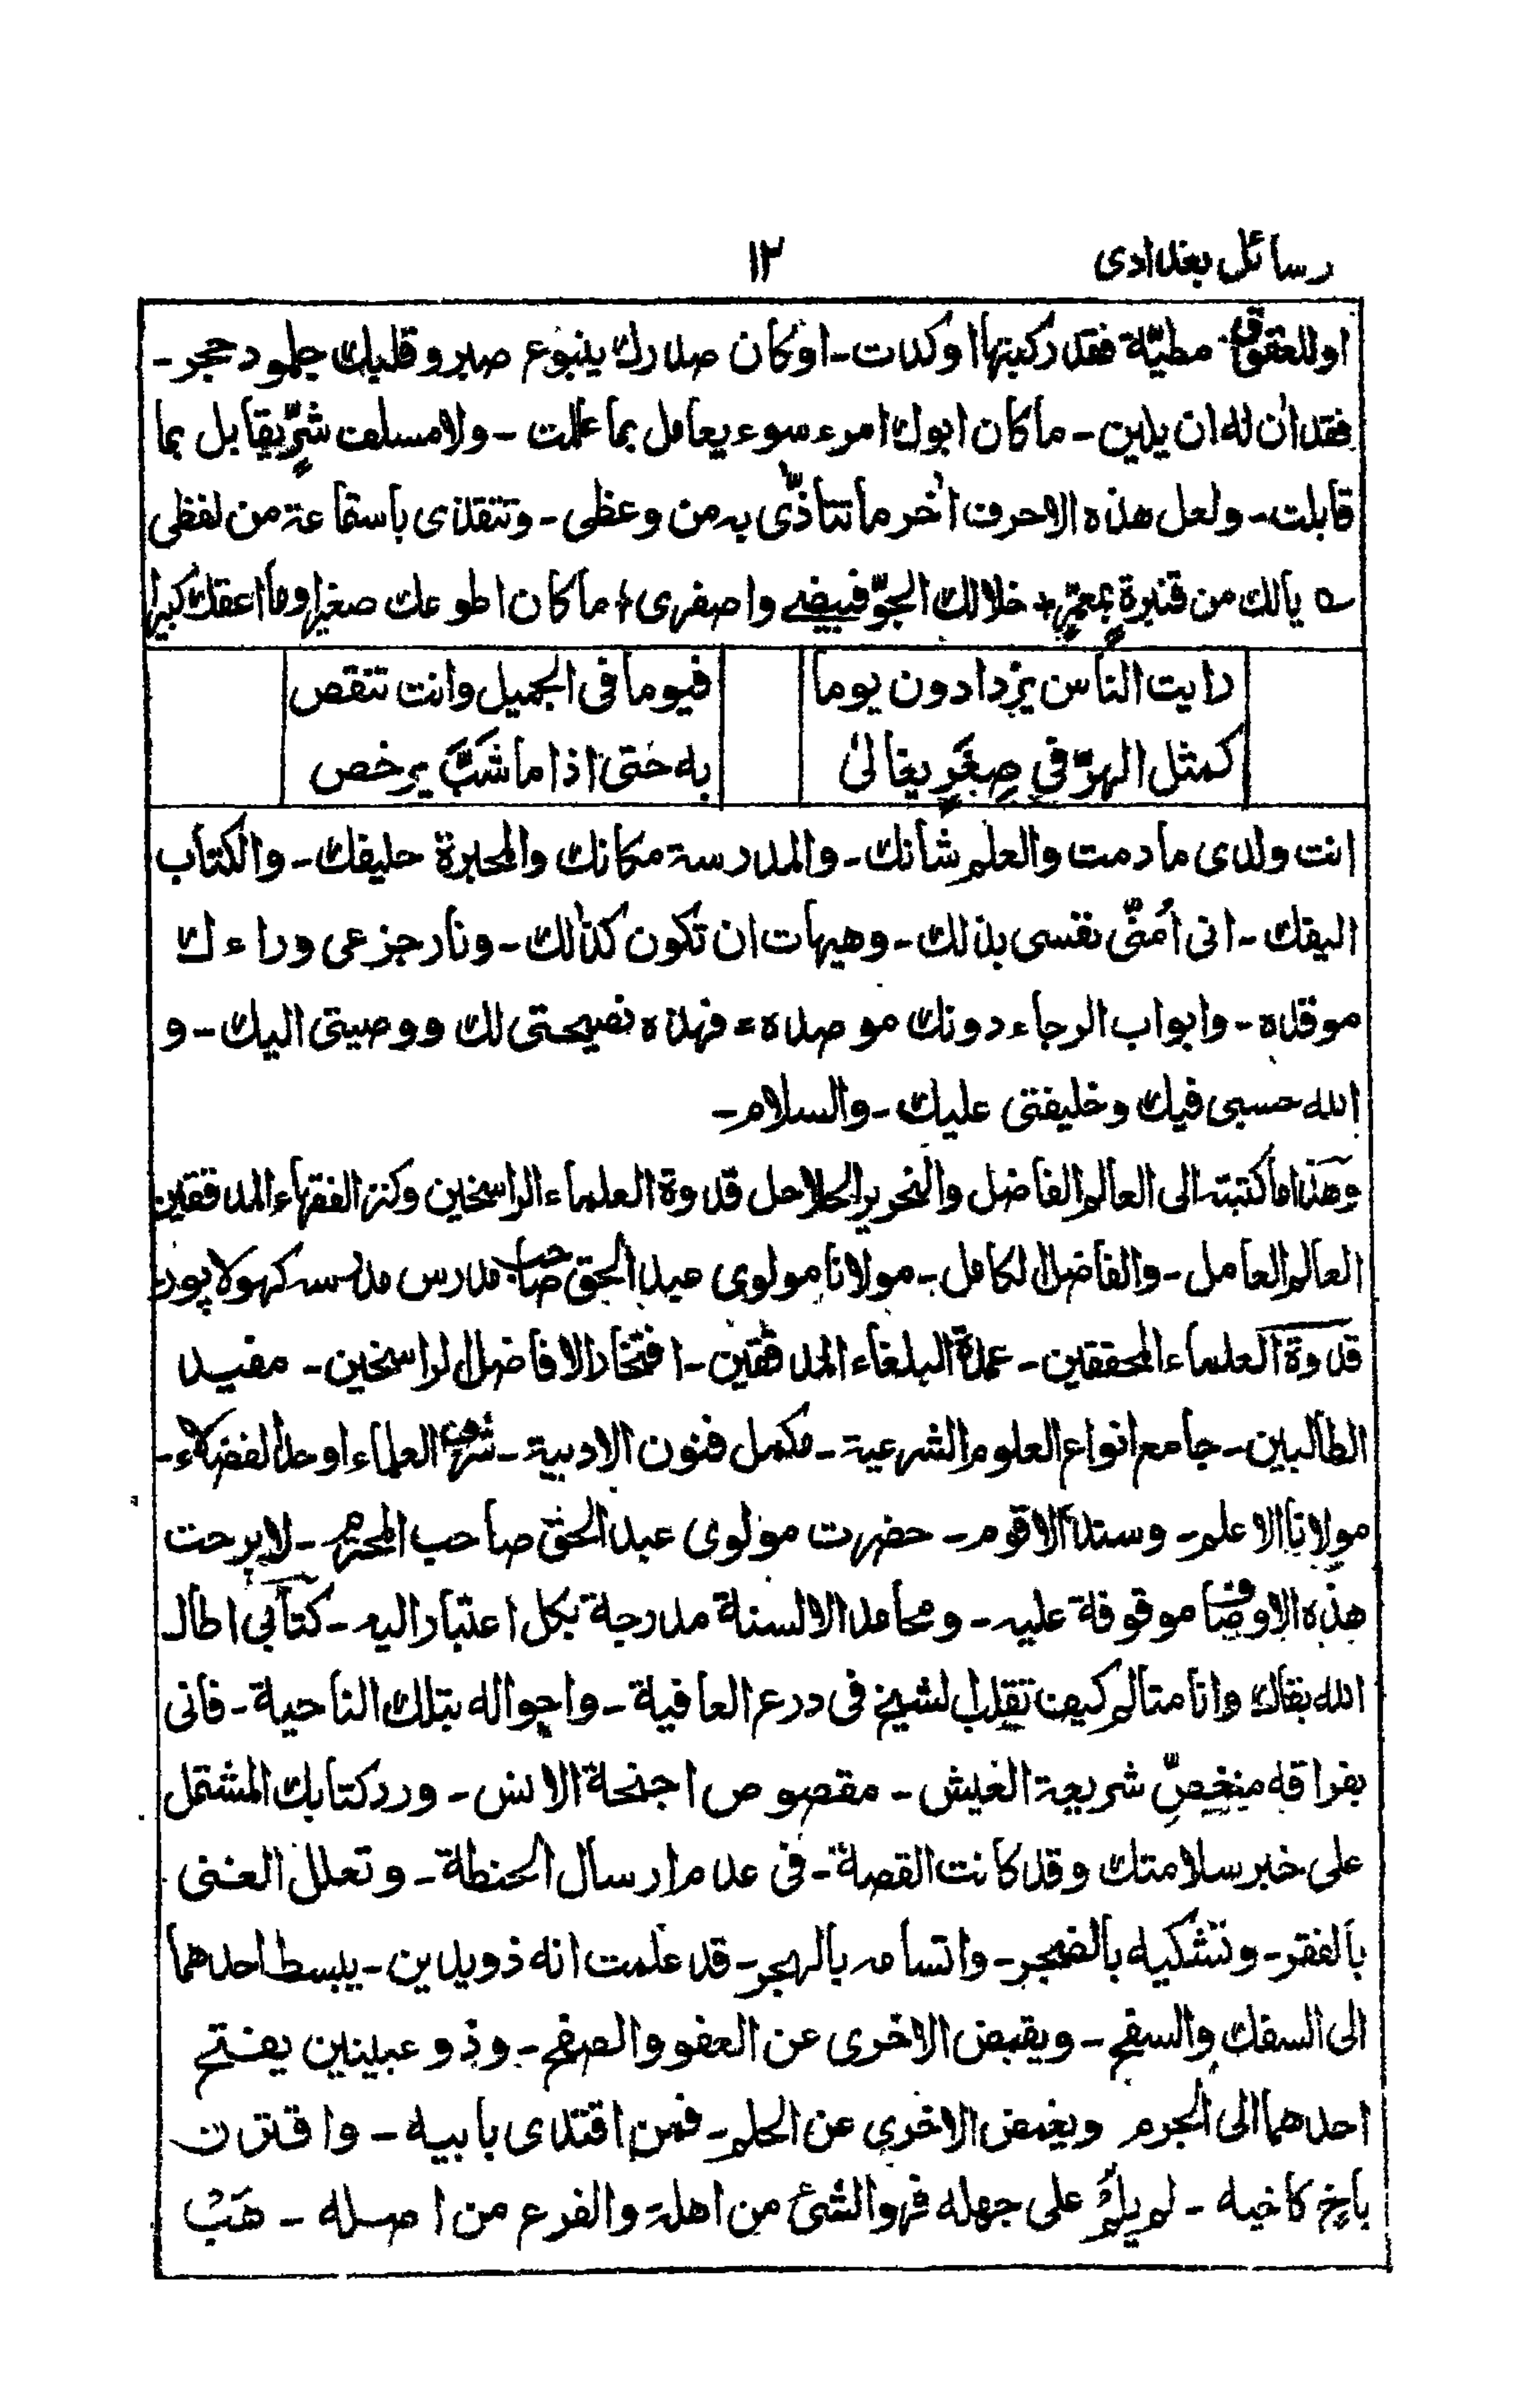 رسائل بغدادی
١٢
او للعقوق مطیّة فقد رکبتها او کدت۔ او کان صدرك ینبوع صبر و قلبك جلمود حجر۔
فقد اٰن له ان یلین۔ ما کان ابوك امرء سوء یعامل بما عملت۔ ولا مسلف شرٍّ یقابل بما
قابلت۔ ولعل هذه الاحرف اٰخر ما تتاذّی به من وعظی۔ وتتقذی باستماعة من لفظی
یالك من قنبرة بمعمرٍ + خلالك الجوّ فبیضی واصفری + ما کان اطوعك صغیرا وما اعقك کبیرا
رایت الناس یزدادون یوما
فیوما فی الجمیل وانت تنقص
کمثل الهرّ فی صِغَرٍ یغالیٰ
به حتی اذا ما شَبَّ یرخص
انت ولدی ما دمت والعلم شأنك۔ والمدرسة مکانك والمحبرة حلیفك۔ والکتاب
الیفك۔ انی اُمنّی نفسی بذلك۔ وهیهات ان تکون کذالك۔ ونار جزعی وراءك
موقده۔ وابواب الرجاء دونك موصده۔ فهذه نصیحتی لك ووصیتی الیك۔ و
الله حسبی فیك وخلیفتی علیك۔ والسلام۔
وهذا ما کتبته الی العالم الفاضل والنحریر الحلاحل قدوة العلماء الراسخین وکنز الفقهاء المدققین
العالم العامل۔ والفاضل الکامل۔ مولانا مولوی عبد الحق صاحب مدرس مدرسه کهولاپور
قدوة العلماء المحققین۔ عمدة البلغاء المدققین۔ افتخار الافاضل الراسخین۔ مفید
الطالبین۔ جامع انواع العلوم الشرعیة۔ مکمل فنون الادبیة۔ شرف العلماء اوحد الفضلاء۔
مولانا الاعلم۔ وسندنا الاقوم۔ حضرت مولوی عبد الحق صاحب المحترم۔ لا برحت
هذه الاوصاف موقوفة علیه۔ ومحامد الالسنة مدرجة بکل اعتبار الیه۔ کتابی اطال
الله بقاك وانا متالم کیف تقلب الشیخ فی درع العافیة۔ واحواله بتلك الناحیة۔ فانی
بفراقه منغصّ شریعة العیش۔ مقصوص اجنحة الانس۔ ورد کتابك المشتمل
علی خبر سلامتك وقد کانت القصة۔ فی عدم ارسال الحنطة۔ وتعلل الغنی
بالفقر۔ وتشکیه بالضجر۔ واتسامه بالهجر۔ قد علمت انه ذو یدین۔ یبسط احدهما
الی السفك والسفح۔ ویقبض الاخری عن العفو والصفح۔ وذو عینین یفتح
احدهما الی الجرم ویغمض الاخری عن الحلم۔ فمن اقتدی بابیه۔ واقترن
باخ کاخیه۔ لم یلم علی جهله فهو الشئ من اهله والفرع من اصله۔ هَبْ